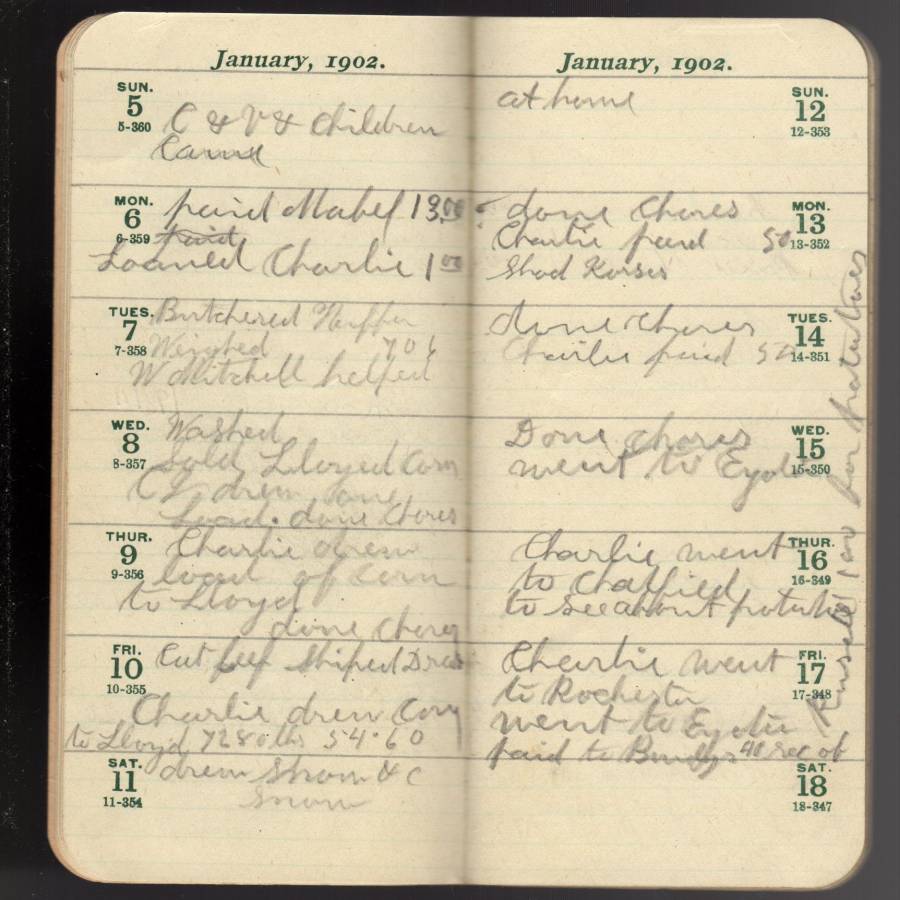 January, 1902.
SUN.
5
5-360
C & V & Children
Came
MON.
6
6-359
paid Mabel 13.00
paid
Loaned Charlie 1 00
TUES.
7
7-358
Butchered Heiffer
Weighed 706
W Mitchell helped
WED.
8
8-357
Washed
Sold Lloyed Corn
drew one
Load. done Chores
THUR.
9
9-356
Charlie drew
load of Corn
to Lloyd
done Chores
FRI.
10
10-355
Cut beef Shiped
Charlie drew Corn
to Lloyd 7280 lbs 54.60
SAT.
11
11-354
drew Snow & C
Snow
January, 1902.
SUN.
12
12-353
at home
MON.
13
13-352
done Chores
Charlie paid 50
Shod Horses
TUES.
14
14-351
done chores
Charlie paid 50
WED.
15
15-350
Done chores
went to Eyota
THUR.
16
16-349
Charlie went
to Chatfield
to see about potatoes
FRI.
17
17-348
Charlie went
to Rochester
went to Eyota
paid to 40 rec of
SAT.
18
18-347
100 for potatoes